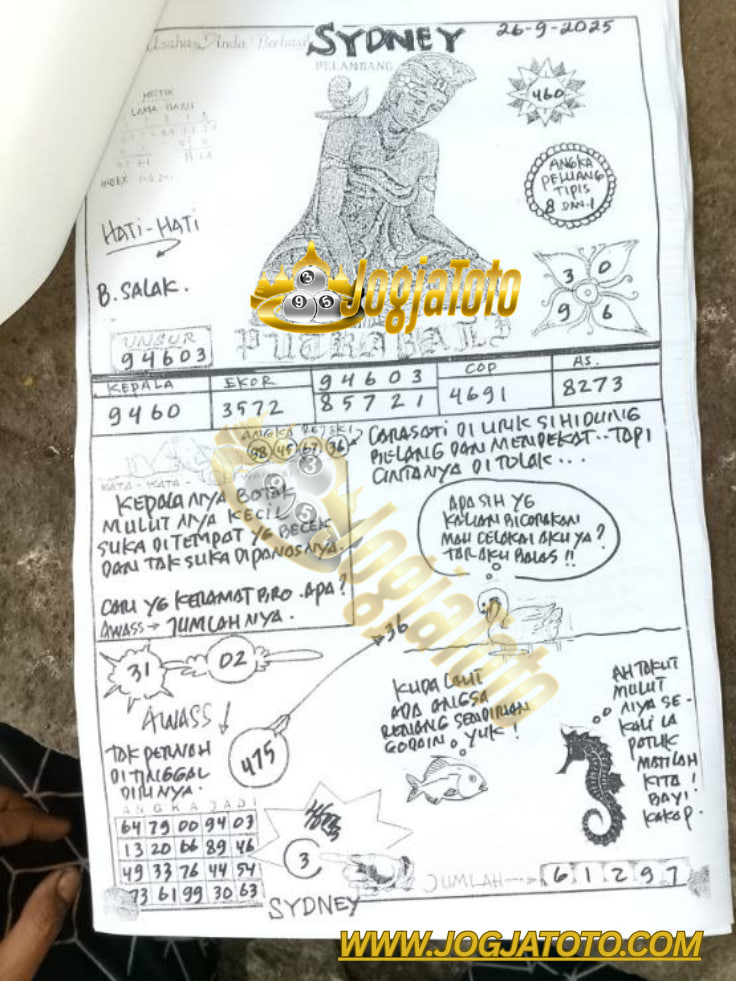 Usaha Anda Berhasil
SYDNEY
26-9-2025
PELAMBANG
MISTIK
LAMA BARU
INDEX
460
ANGKA
PELUANG
TIPIS
8 DAN 1
HATI-HATI
B. SALAK.
3 0
9 6
JogjaToto
3
9 5
PUTRA BALI
UNSUR
94603
KEPALA
9460
EKOR
3572
94603
85721
COP
4691
AS.
8273
ANGKA
38 45 67 36
CARASATI DI URUK SI HIDUNG
BELANG DAN MENDEKAT.. TAPI
CINTANYA DI TOLAK...
KATA - KATA -
KEPALANYA BOTAK
MULUTNYA KECIL
SUKA DITEMPAT YG BECEK
DAN TAK SUKA DIPANASNYA.
CARI YG KERAMAT BRO. APA?
AWASS → JUMLAHNYA.
ADA SIH YG
KALIAN BICARAKAN
MAU CELAKAI AKU YA?
TAR AKU BALAS !!
3
9 5
JogjaToto
36
31
02
AWASS
475
TAK PERNAH
DI TINGGAL
DIRINYA.
KUDA LAUT
ADA ANGSA
RENANG SENDIRIAN
GODAIN YUK !
AH TAKUT
MULUT
NYA SE-
KALI LA
PATUK
MATILAH
KITA !
BAYI
KAKAP.
ANGKA JADI
64 79 00 94 03
13 20 66 89 46
49 33 76 44 54
73 61 99 30 63
3
SYDNEY
JUMLAH 61297
WWW.JOGJATOTO.COM